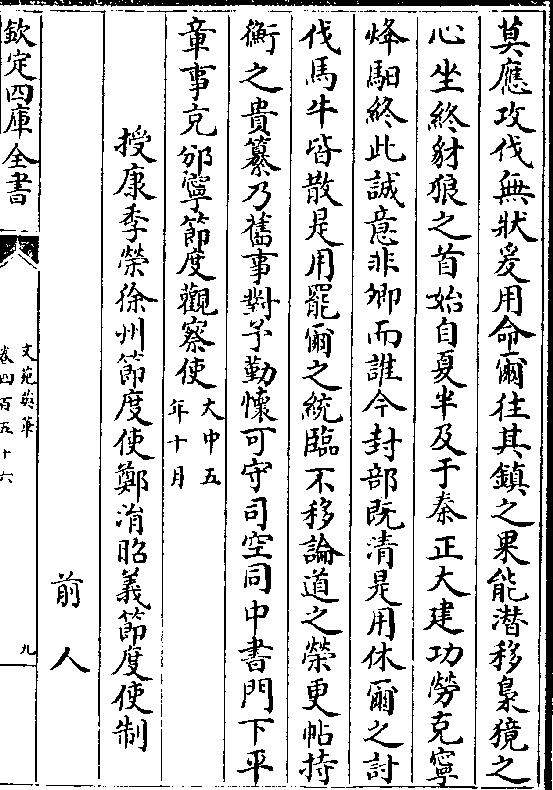 莫應攻伐無狀爰用命爾往其鎮之果能潛移梟獍之
心坐終豺狼之首始自夏半及于秦正大建功勞克寧
烽駟終此誠意非卿而誰今封部既清是用休爾之討
伐馬牛皆散是用罷爾之統臨不移論道之榮更帖持
衡之貴纂乃舊事對予勤懷可守司空同中書門下平
章事充邠寧節度觀察使大中五年十月
授康季榮徐州節度使鄭涓昭義節度使制
前人
欽定四庫全書
文苑英華
卷四百五十六
九